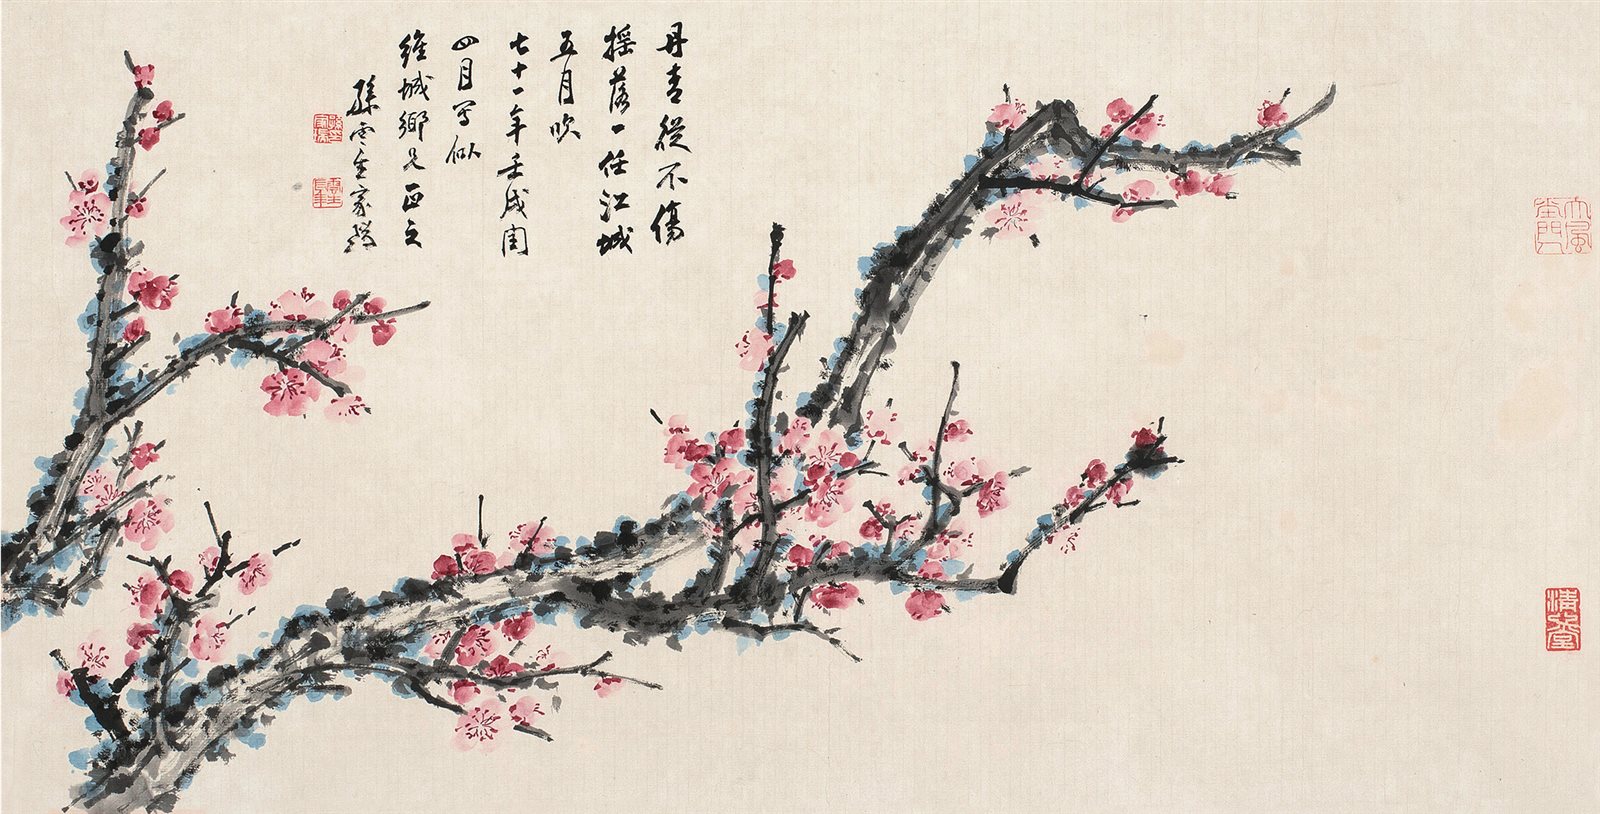 丹青從不傷
摇落一任江城
五月吹
七十一年壬戌閏
四月写似
維城鄉兄正之
孫雲生家瑞
大風堂門